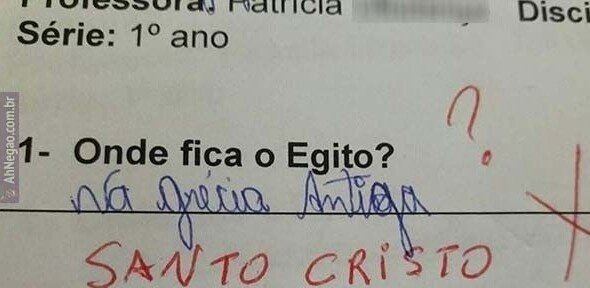 Professora: Patricia
Disci
Série: 1º ano
?
1- Onde fica o Egito?
na grécia Antiga
SANTO CRISTO
AhNegao.com.br